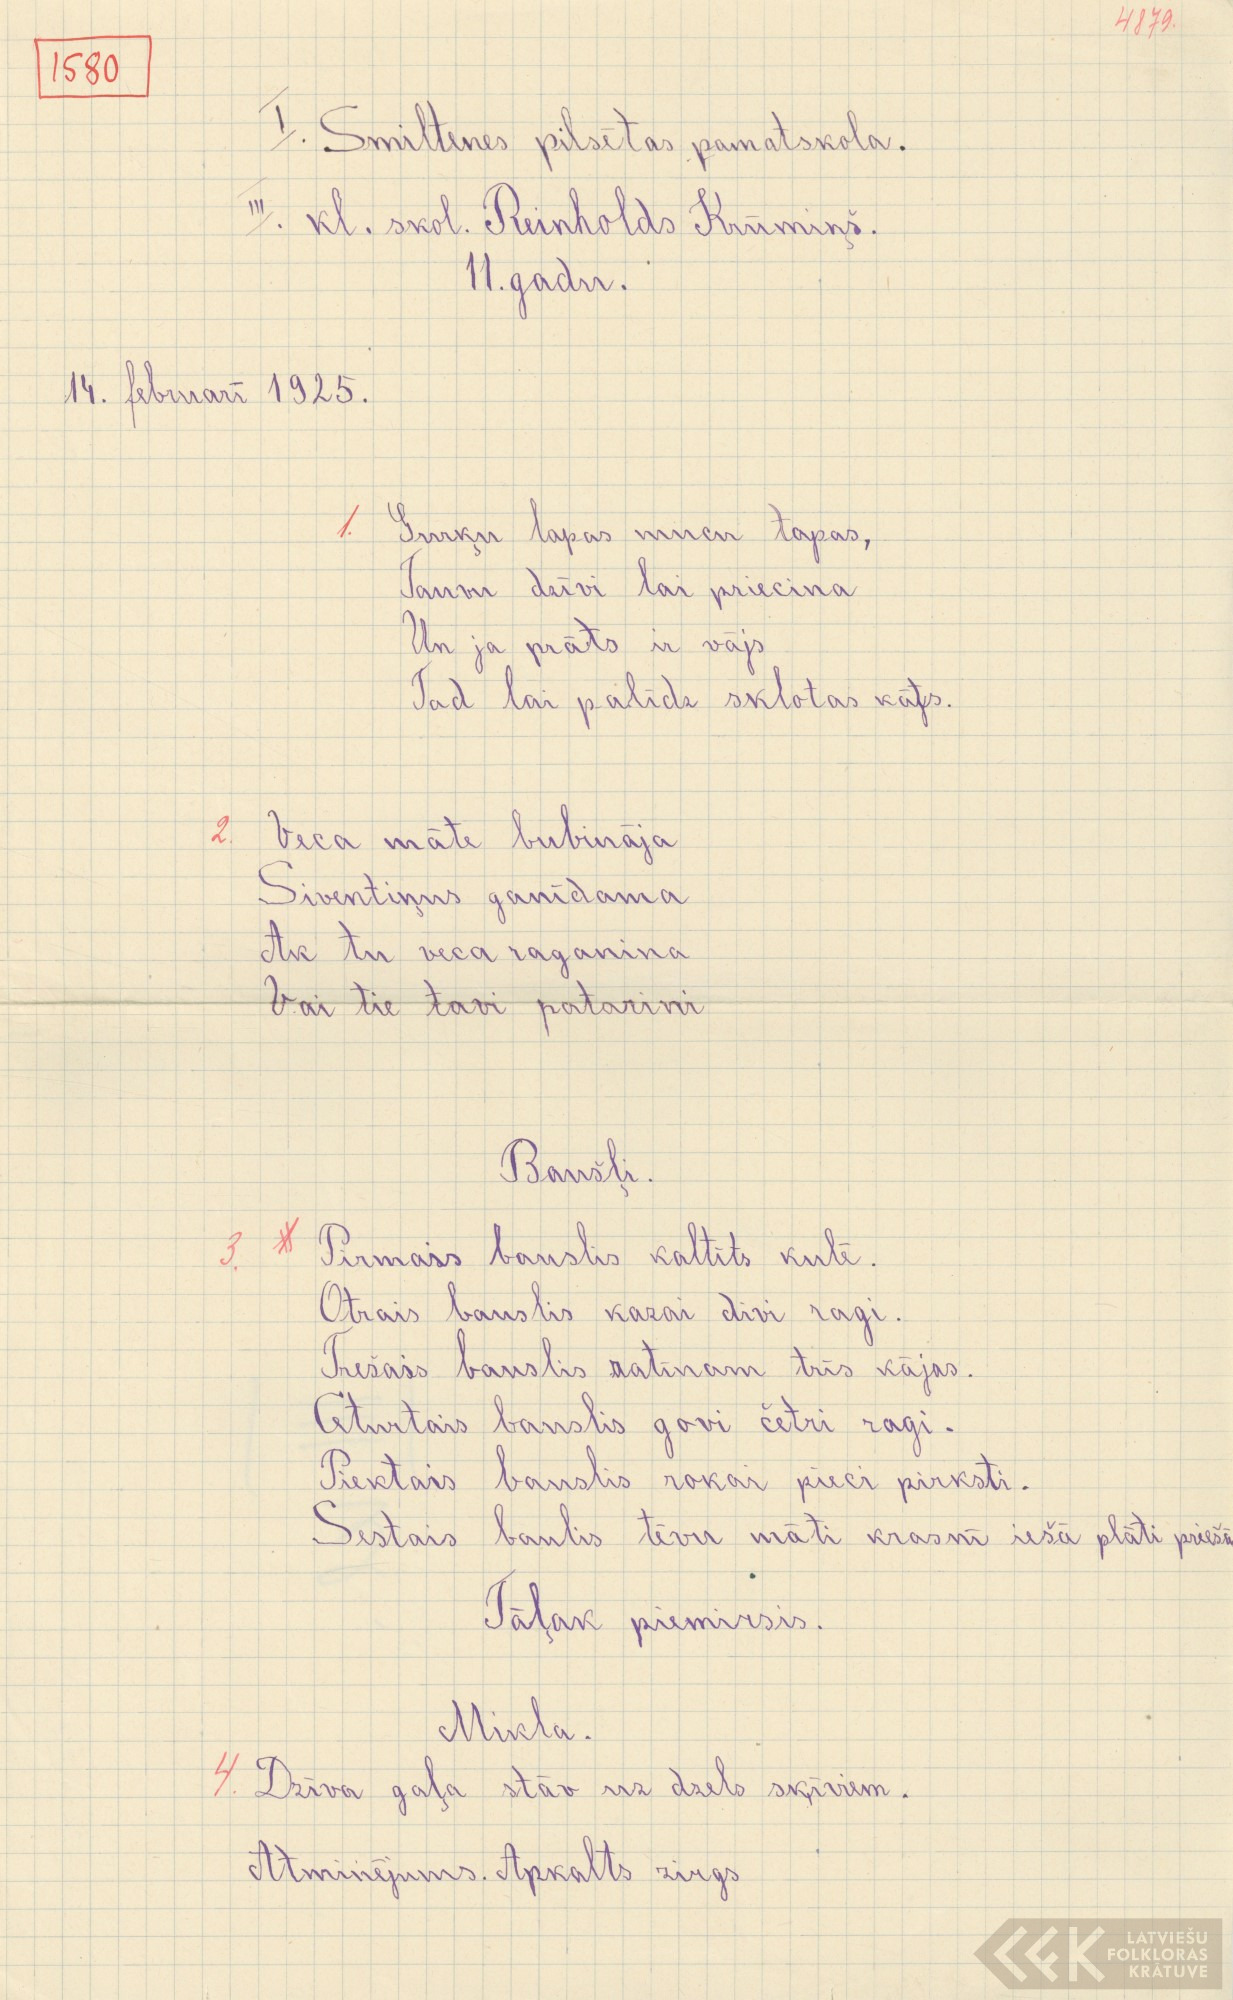 4879.
1580
I. Smiltenes pilsētas pamatskola.
III. kl. skol. Reinholds Krūmiņš.
11. gadu.
14. februarī 1925.
1. Gurķu lapas mucu tapas,
Tauvu dzīvi lai priecina
Un ja prāts ir vājs
Tad lai palīdz sklotas kāts.
2. Veca māte bubināja
Siventiņus ganīdama
Ak tu veca raganina
Vai tie tavi patarini
Baušļi.
3. Pirmais bauslis kaltīts kulē.
Otrais bauslis kazai divi ragi.
Trešais bauslis ratiņam trīs kājas.
Ceturtais bauslis govi četri ragi.
Piektais bauslis rokai pieci pirksti.
Sestais baulis tēvu māti krasnī iešā plāti priešā
Tāļak piemirsis.
Mikla.
4. Dzīva gaļa stāv uz dzels sķīviem.
Atminējums. Apkalts zirgs
LATVIEŠU
FOLKLORAS
KRĀTUVE